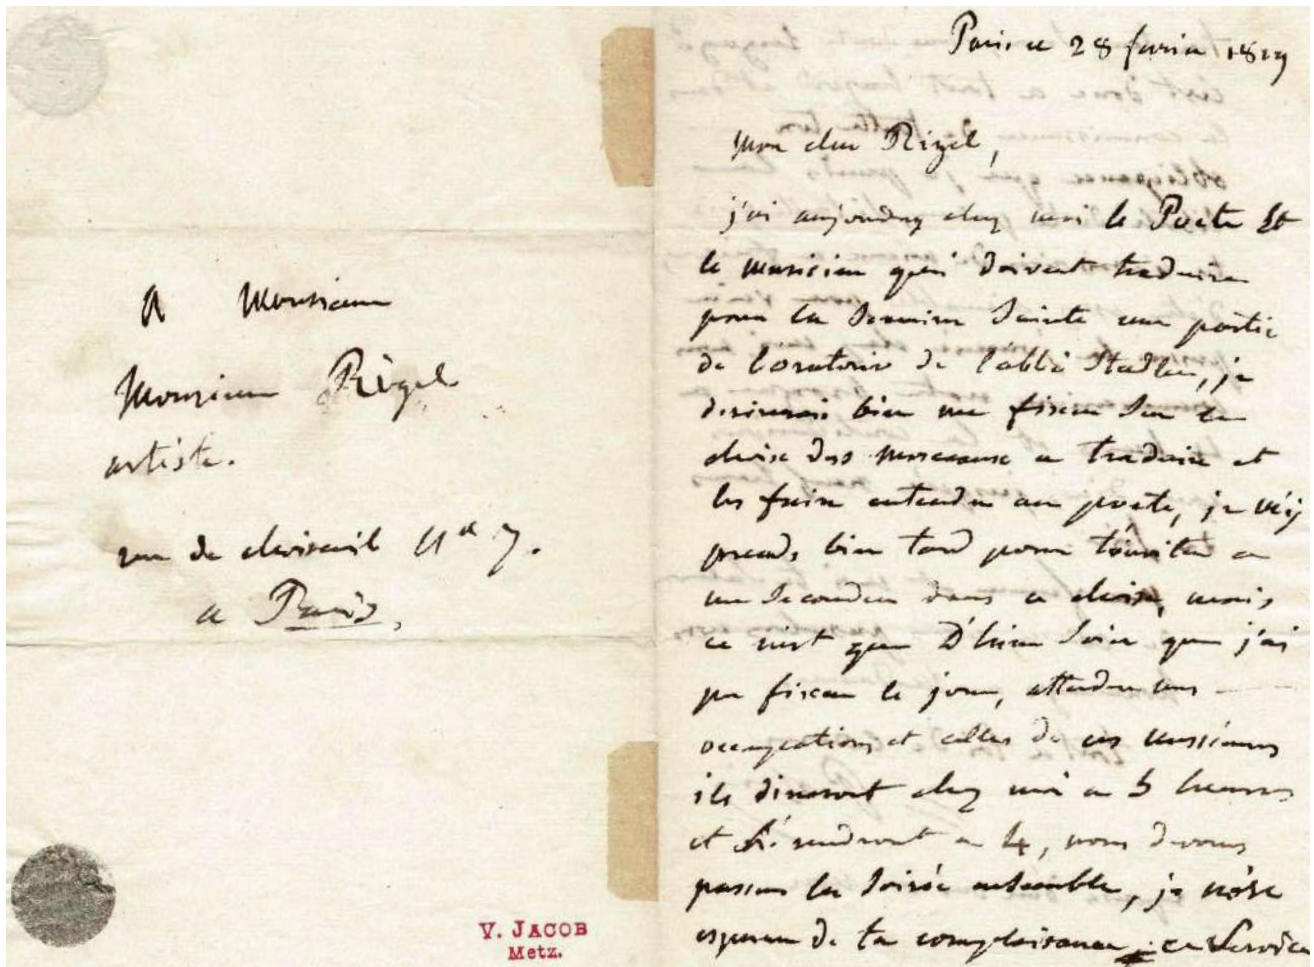 A Monsieur
Monsieur Rigel
artiste.
rue de choiseuil N° 7.
a Paris,
V. JACOB
Metz.
Paris ce 28 1819
Mon cher Rigel,
j'ai aujourdhuy chez moi le Poete Et
le musicien qui doivent traduire
pour la Semaine Sainte une partie
de l'oratorio de l'abbé Stadler, je
desirerais bien me fixer Sur le
choix des morceaux a traduire et
les faire entendre au poete, je m'y
prends bien tard pour t'inviter a
me Seconder dans ce choix, mais
ce n'est que D'hier Soir que j'ai
pu fixer le jour, attendu mes
occupations et celles de ces messieurs
ils dineront chez moi a 5 heures
et S'y rendront a 4, nous devons
passer la Soirée ensemble, je n'ose
esperer de ta complaisance ce Service